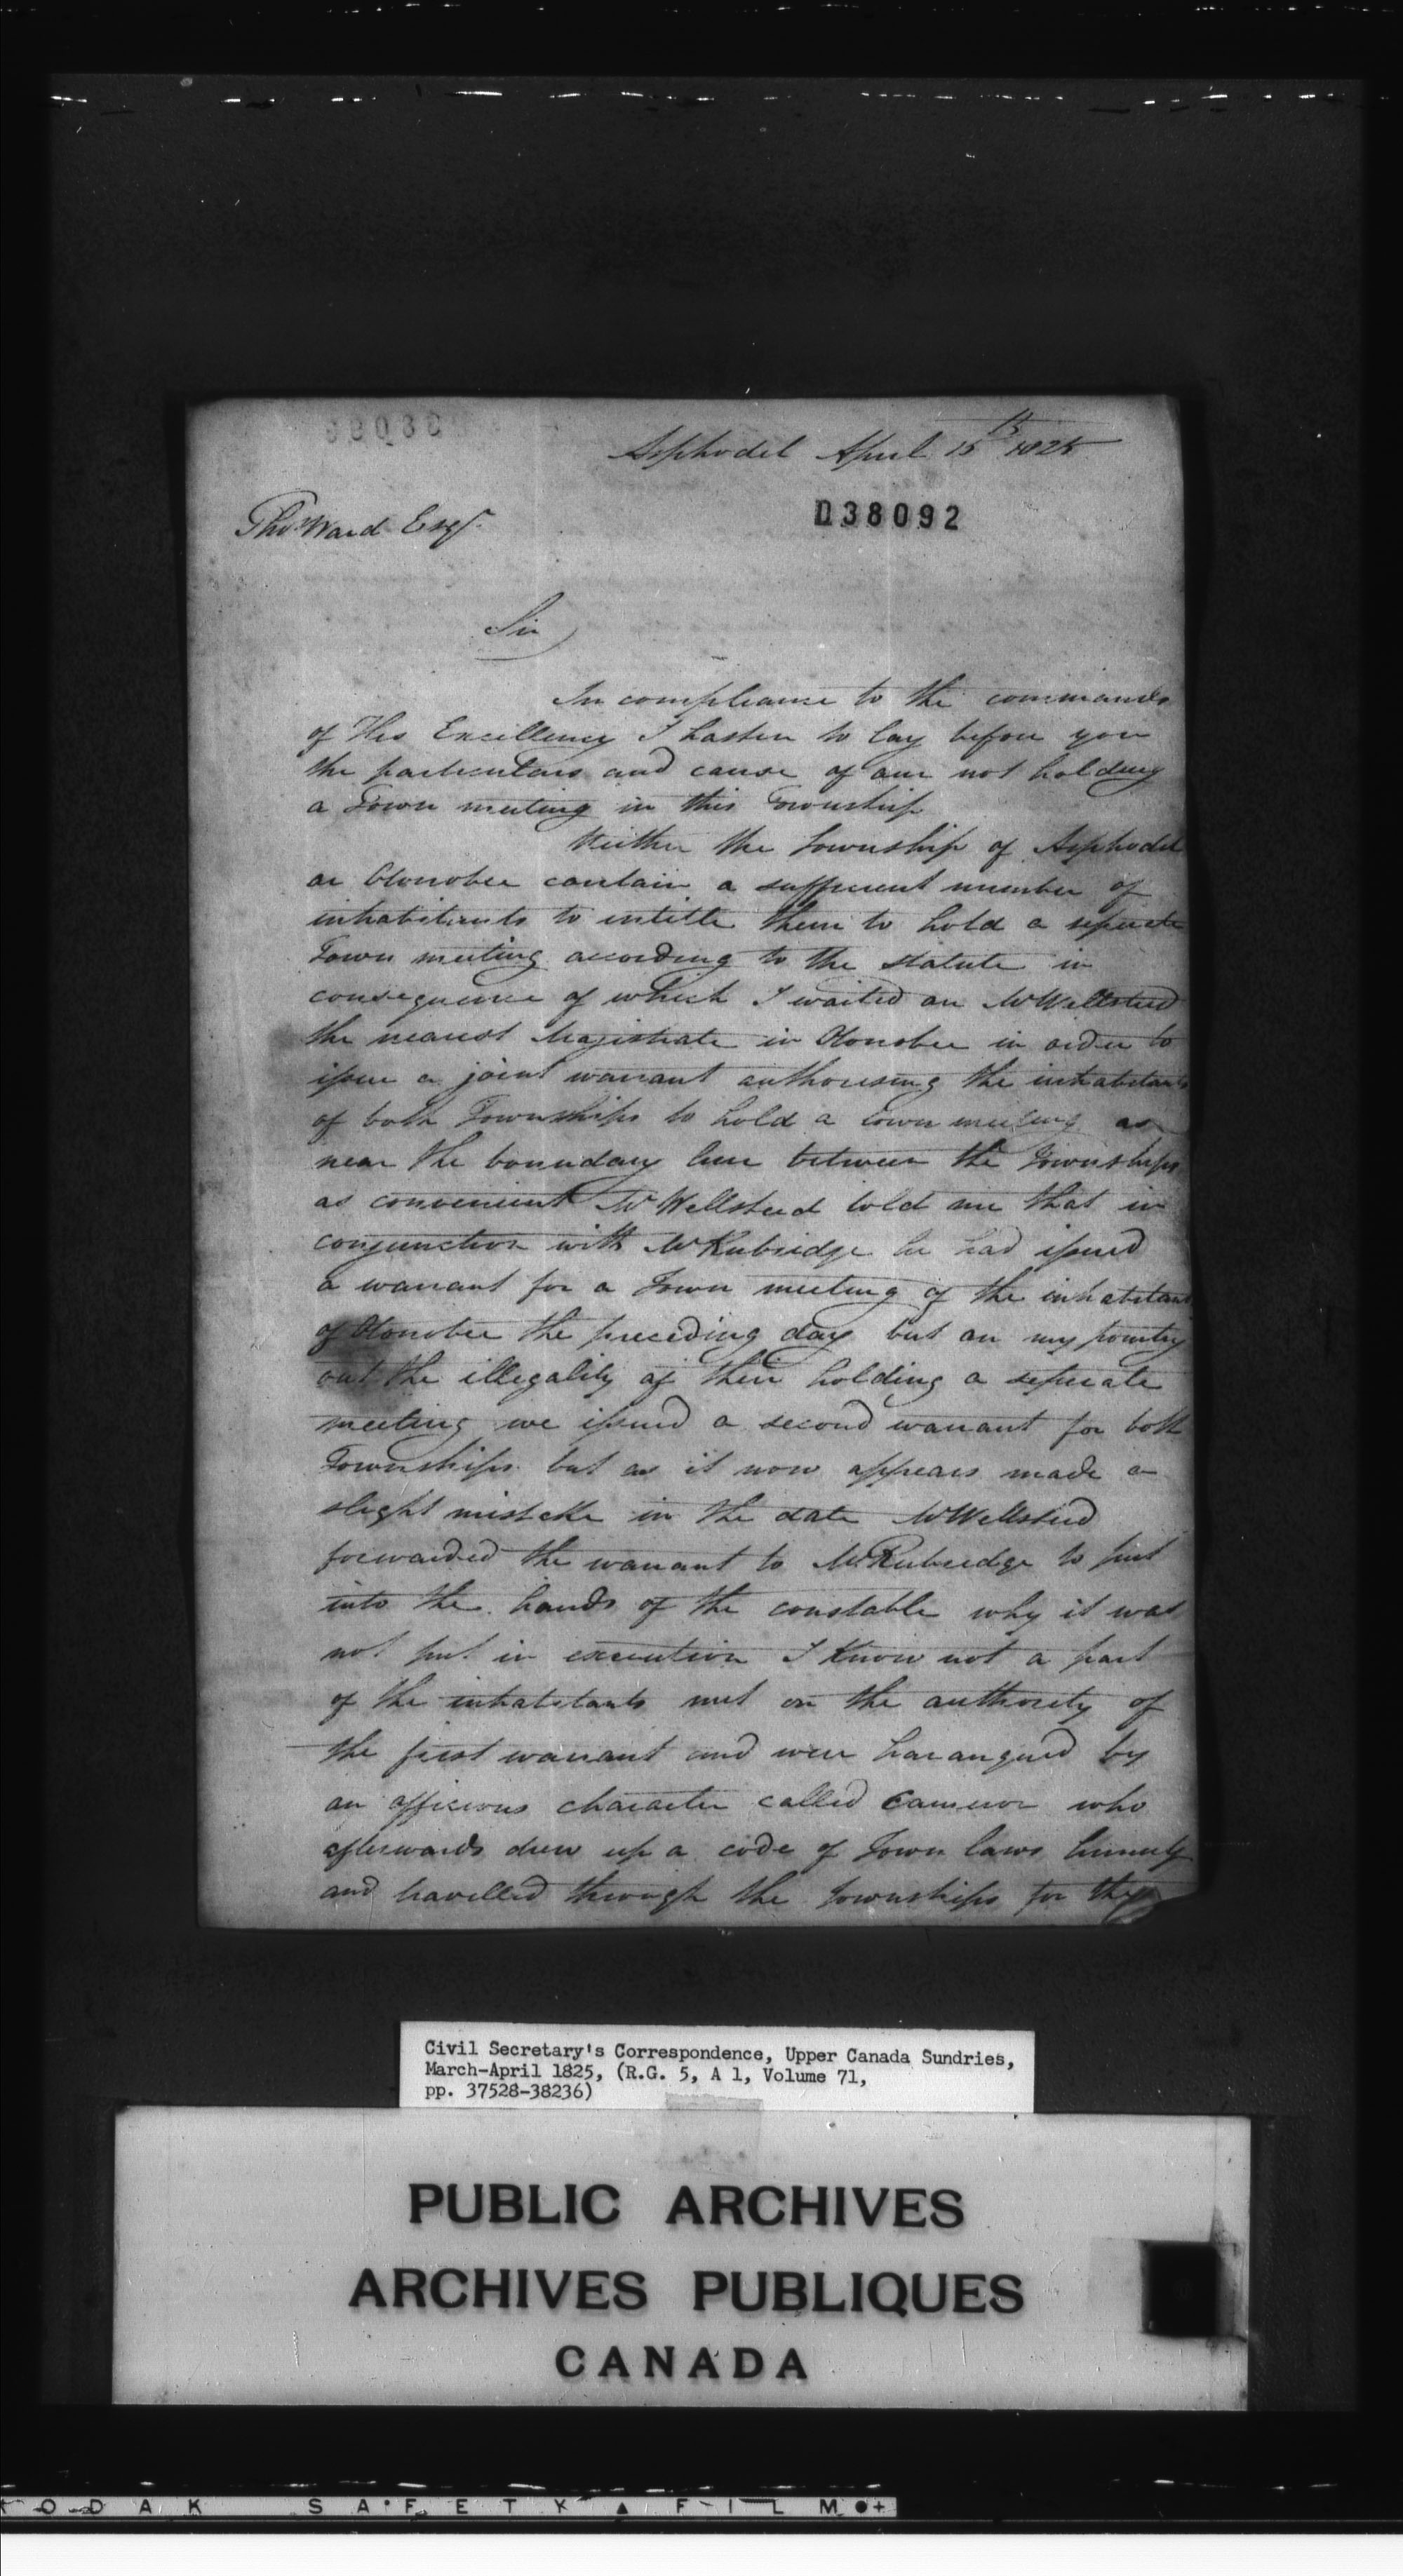 Asphodel April 15th 1825
D38092
Thos Ward Esqr
Sir
In compliance to the commands
of His Excellency I hasten to lay before you
the particulars and cause of our not holding
a Town meeting in this Township
Neither the Township of Asphodel
or Otonobee contain a sufficient number of
inhabitants to intitle them to hold a seperate
Town meeting according to the statute in
consequence of which I waited on Mr Wellsteed
the nearest Magistrate in Otonobee in order to
issue a joint warrant authorising the inhabitants
of both Townships to hold a town meeting as
near the boundary line between the Townships
as convenient Mr Wellsteed told me that in
conjunction with Mr Rubidge he had issued
a warrant for a Town meeting of the inhabitants
of Otonobee the preceding day but on my pointing
out the illegality of their holding a seperate
meeting we issued a second warrant for both
Townships but as it now appears made a
slight mistake in the date Mr Wellsteed
forwarded the warrant to Mr Rubidge to put
into the hands of the constable why it was
not put in execution I know not a part
of the inhabitants met on the authority of
the first warrant and were harangued by
an officious character called Cameron who
afterwards drew up a code of Town laws himself
and travelled through the Townships for the
Civil Secretary's Correspondence, Upper Canada Sundries,
March-April 1825, (R.G. 5, A 1, Volume 71,
pp. 37528-38236)
PUBLIC ARCHIVES
ARCHIVES PUBLIQUES
CANADA
KODAK SAFETY ▲ FILM